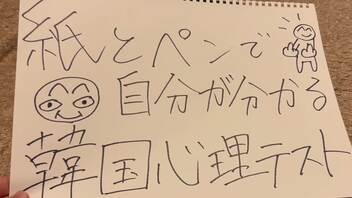 紙とペンで
自分が分かる
韓国心理テスト